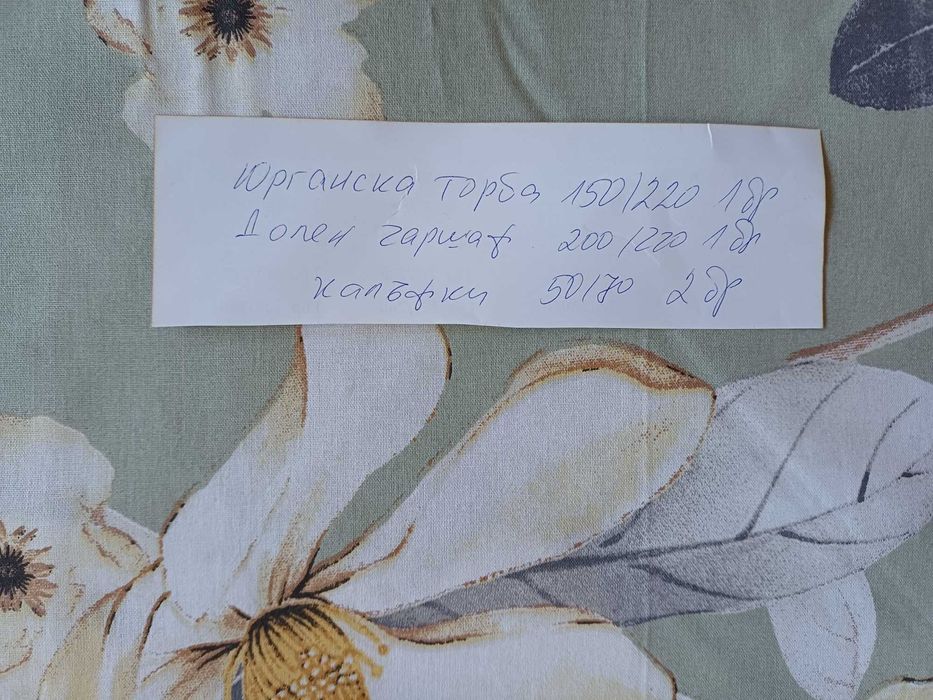 Юрганска торба 150/220 1бр
Долен чаршаф 200/220 1бр
Калъфки 50/70 2бр